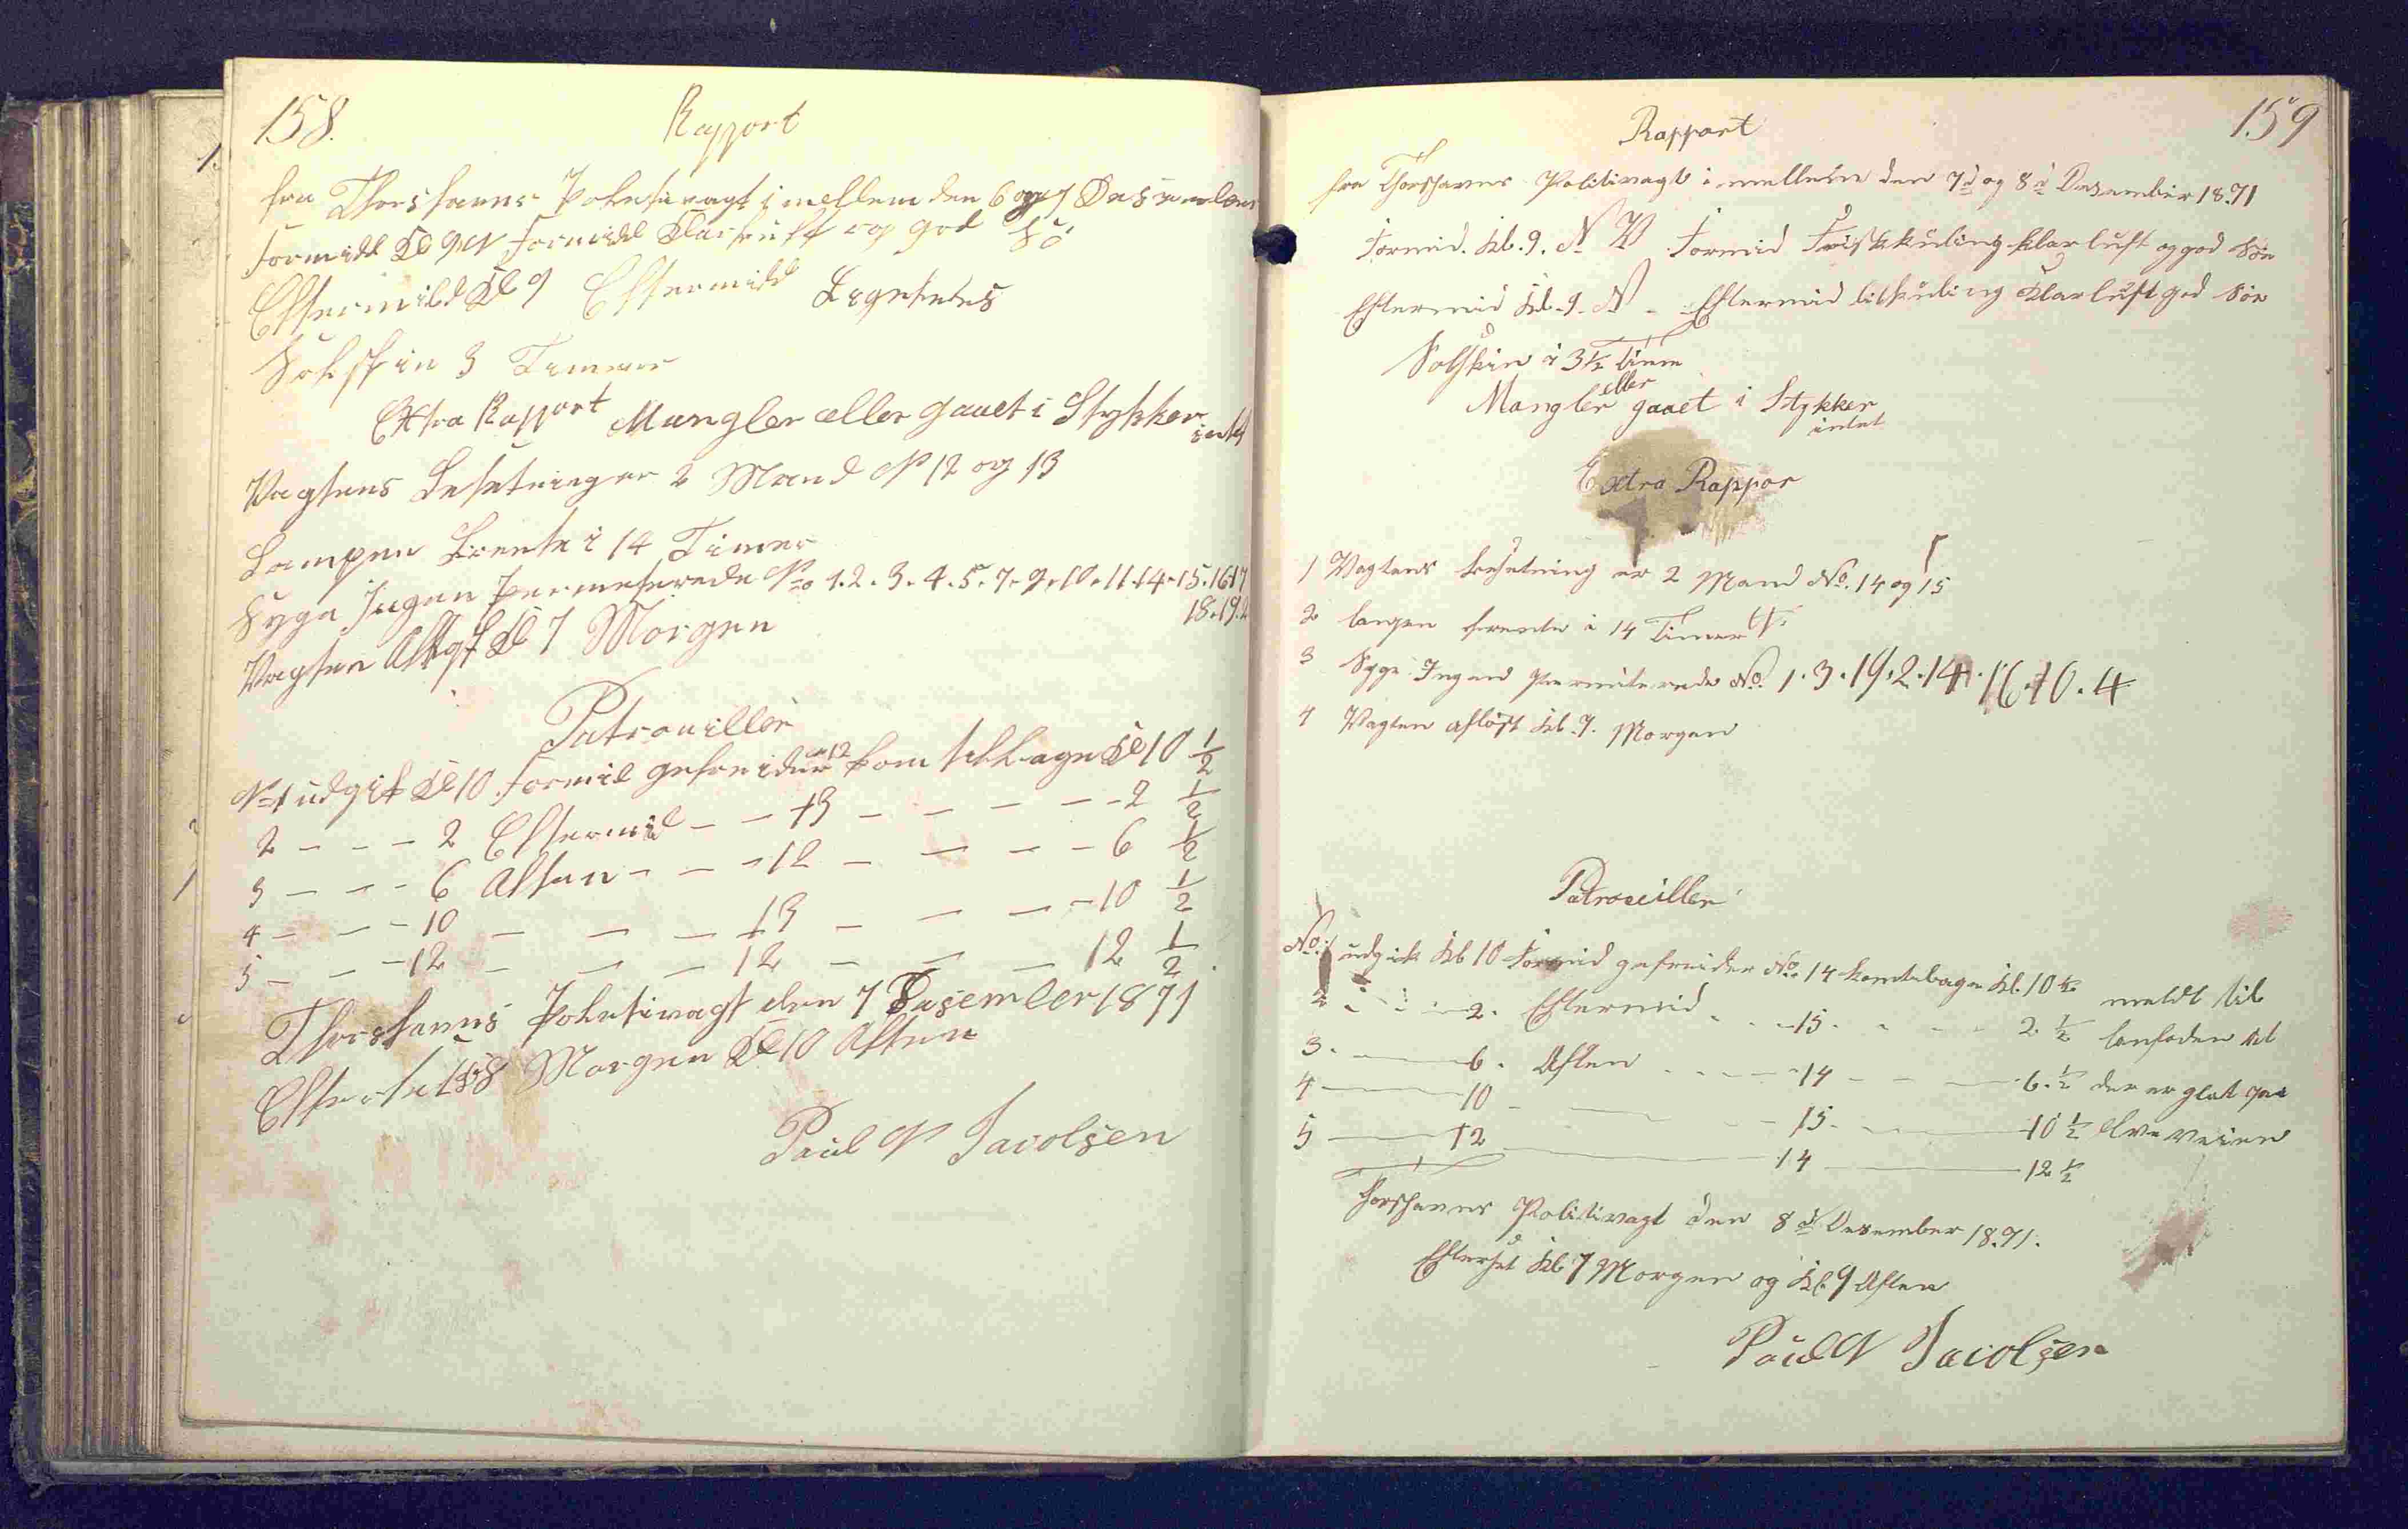 158.
Rapport
fra Thorshavns Politivagt imellem den 6 og 7 Desember
Formidd Kl 9 N Formidd Klarluft og god Sö
Eftermidd Kl 9 Eftermidd Ligeledes
Solskin 3 Timmer
Extra Rapport Mangler eller gaaet i Stykker intet
Vagtens Besetning er 2 Mand N 12 og 13
Lampen Brente i 14 Timer
Syge Ingen Permeterede No 1.2.3.4.5.7.9.10.11.14.15.16.17
18.19.2
Vagten Aflöst Kl 7 Morgen
Patrouiller
No 1 udgik Kl 10 Formid gefreider 12 kom tilbage Kl 10 1/2
2 - - - 2 Eftermid - - 13 - - - - - 2 1/2
3 - - - 6 Aften - - - 12 - - - - 6 1/2
4 - - - 10 - - - 13 - - - - 10 1/2
5 - - - 12 - - - 12 - - - 12 1/2
Thorshavns Politivagt den 7 Desember 1871
Efterset Kl 8 Morgen Kl 10 Aften
Paul N Jacobsen
159
Rapport
fra Thorshavns Politivagt imellem den 7d og 8d Desember 1871
Formid. Kl. 9. N V Formid Friskkuling klarluft og god Sön
Eftermid Kl. 9. N - Eftermid litkuling Klarluft god Sön
Solskin i 3 1/2 Time
Mangler eller gaaet i Stykker
intet
Extra Rappor
1 Vagtens besetning er 2 Mand No. 14 og 15
2 lampen brente i 14 Timer
3 Syge Ingen Permiterede No. 1.3.19.2.14.16.10.4
4 Vagten aflöst Kl. 7. Morgen
Patrouiller
No. 1 udgik Kl 10 Formid gefreider No. 14 kom tilbage Kl. 10 1/2 meldt til
2 - - - 2. Eftermid - - - 15. - - - 2 1/2
3. - 6. Aften - - - 14 - - - 6. 1/2 der er glat paa
4 - 10 - - 15 - 10 1/2
5 - 12 - 14 - 12 1/2
Thorshavns Politivagt den 8d Desember 1871.
Efterset Kl 7 Morgen og Kl. 9 Aften
Paul N Jacobsen